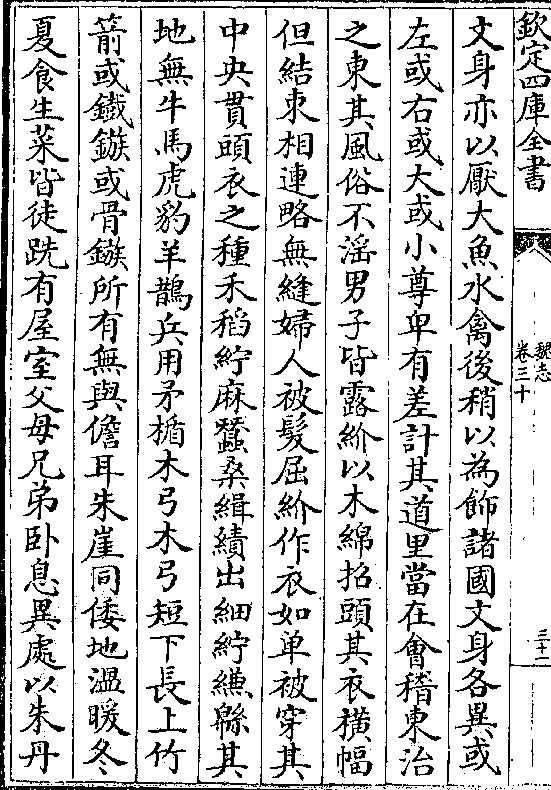 欽定四庫全書
魏志
卷三十
三十一
文身亦以厭大魚水禽後稍以為飾諸國文身各異或
左或右或大或小尊卑有差計其道里當在會稽東治
之東其風俗不淫男子皆露紒以木綿招頭其衣橫幅
但結束相連略無縫婦人被髮屈紒作衣如單被穿其
中央貫頭衣之種禾稻紵麻蠶桑緝績出細紵縑緜其
地無牛馬虎豹羊鵲兵用矛楯木弓木弓短下長上竹
箭或鐵鏃或骨鏃所有無與儋耳朱崖同倭地溫暖冬
夏食生菜皆徒跣有屋室父母兄弟卧息異處以朱丹